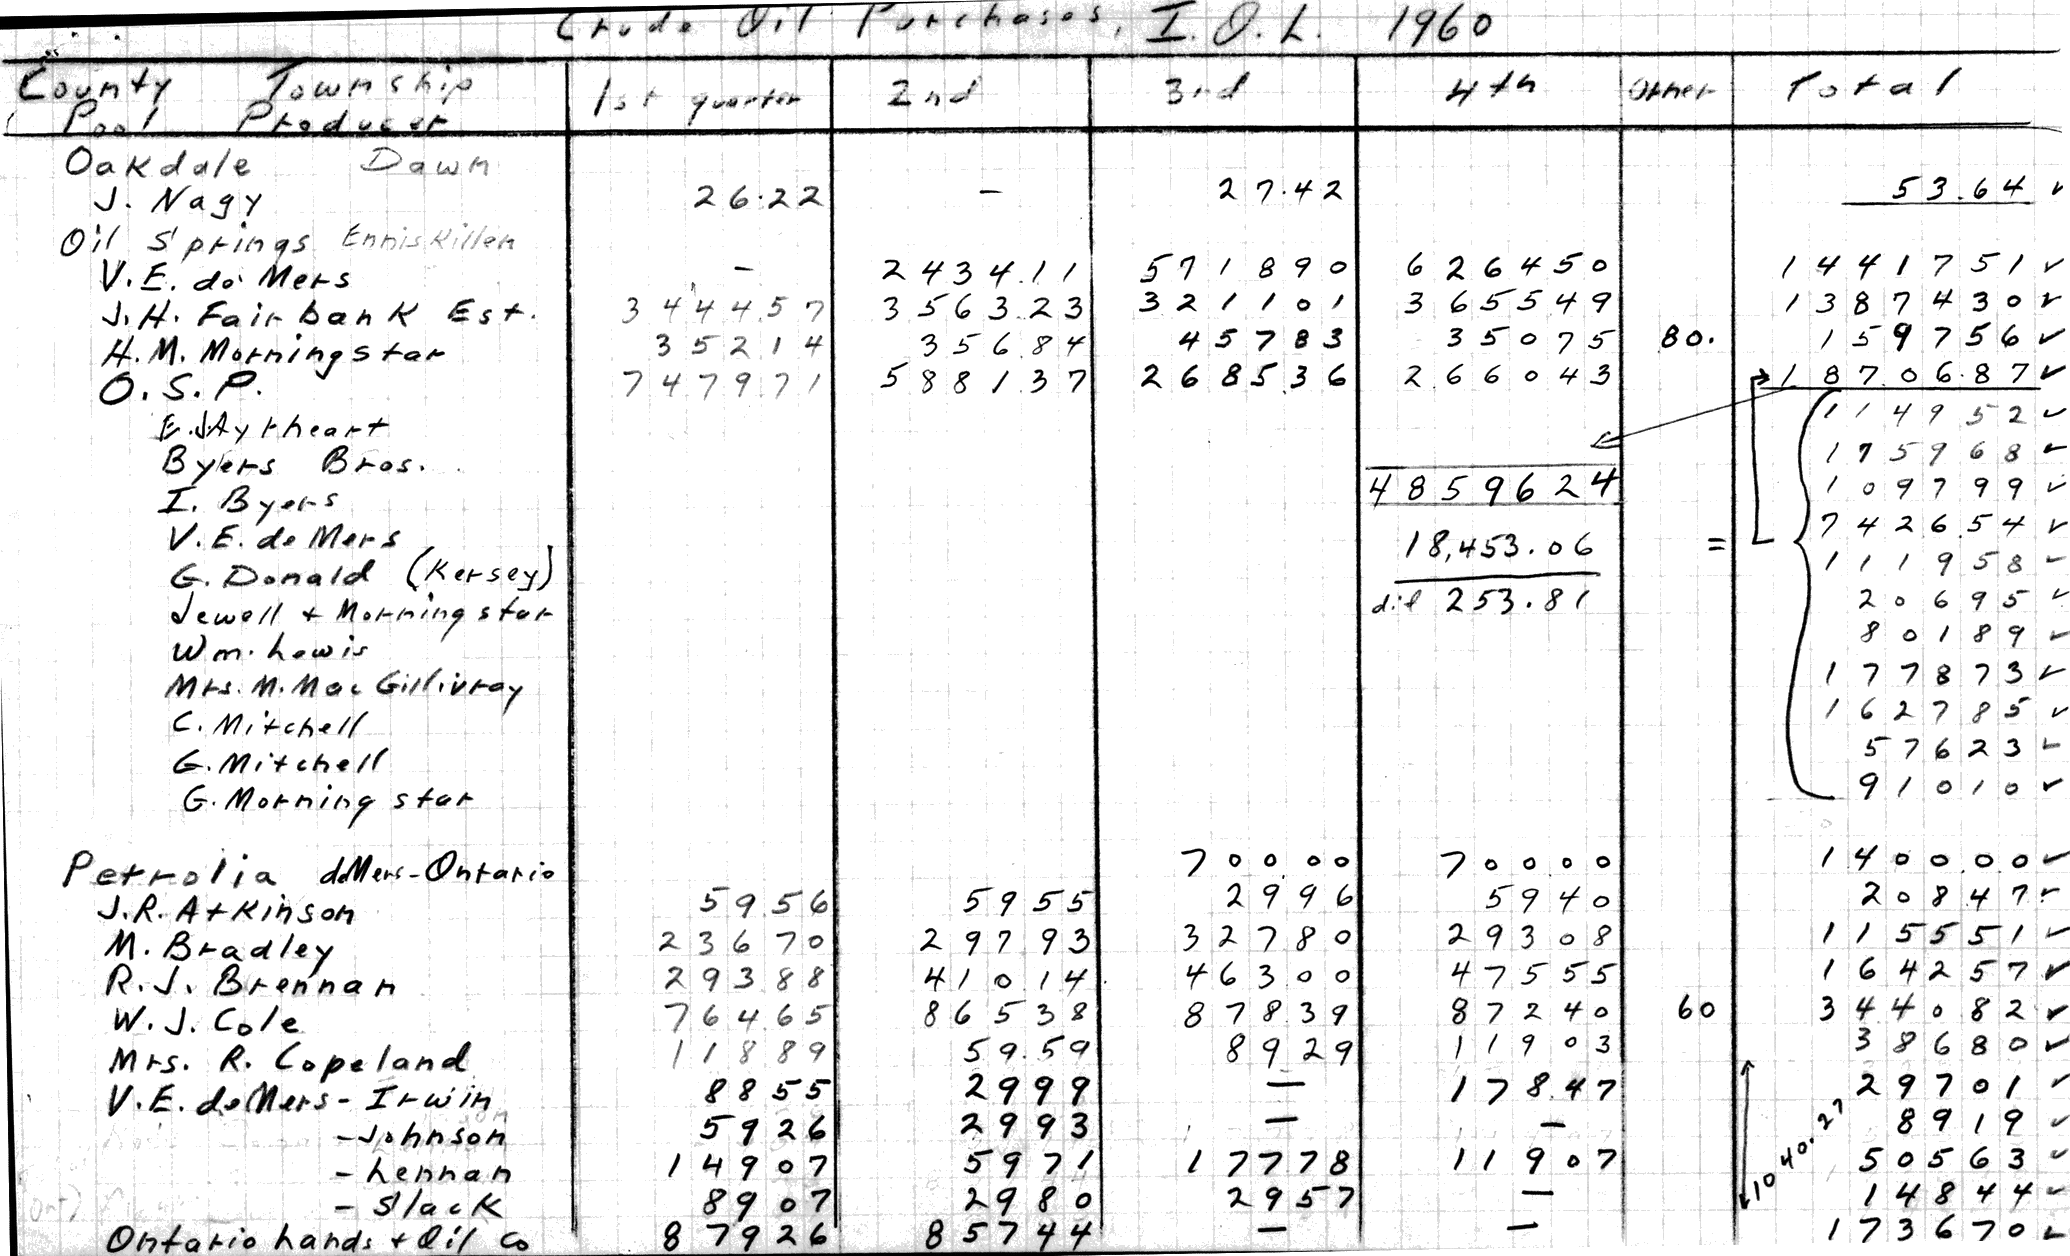 Crude Oil Purchases, I.O.L. 1960
County Township 1st quarter 2nd 3rd 4th Other Total
Pool Producer
Oakdale Dawn
J. Nagy 26.22 - 27.42 53.64 ✓
Oil Springs Enniskillen
V.E. de Mers - 2434.11 571890 626450 1441751 ✓
J.H. Fairbank Est. 344457 356323 321101 365549 1387430 ✓
H.M. Morningstar 35214 35684 45783 35075 80. 159756 ✓
O.S.P. 747971 588137 268536 266043 18706.87 ✓
114952 ✓
Byers Bros. 175968 ✓
I. Byers 4859624 109799 ✓
V.E. de Mers 18,453.06 = 742654 ✓
G. Donald (Kersey) 111958 ✓
Jewell + Morningstar dif 253.81 20695 ✓
Wm. Lewis 80189 ✓
Mrs. M. MacGillivray 177873 ✓
C. Mitchell 162785 ✓
G. Mitchell 57623 ✓
G. Morningstar 91010 ✓
Petrolia deMers-Ontario 70000 70000 140000 ✓
J.R. Atkinson 5956 5955 2996 5940 20847 ✓
M. Bradley 23670 29793 32780 29308 115551 ✓
R.J. Brennan 29388 41014 46300 47555 164257 ✓
W.J. Cole 76465 86538 87839 87240 60 344082 ✓
Mrs. R. Copeland 11889 59.59 8929 11903 38680 ✓
V.E. deMers - Irwin 8855 2999 - 17847 29701 ✓
- Johnson 5926 2993 - - 8919 ✓
- Lennan 14907 5971 17778 11907 50563 ✓
- Slack 8907 2980 2957 - 14844 ✓
1040.27
Ontario Lands + Oil Co 87926 85744 - - 173670 ✓